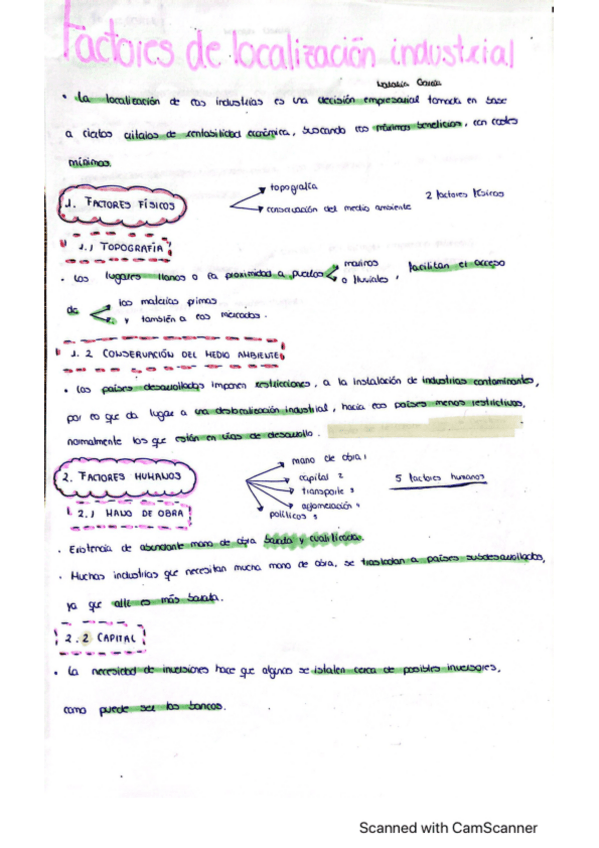 Factores de localización industrial
Natalia García
• La localización de las industrias es una decisión empresarial tomada en base
a ciertos criterios de rentabilidad económica, buscando los máximos beneficios, con costes
mínimos.
1. FACTORES FÍSICOS
topografía
conservación del medio ambiente
2 factores físicos
1.1 TOPOGRAFÍA
• Los lugares llanos o la proximidad a puertos
marinos
o fluviales,
facilitan el acceso
de
las materias primas
y también a los mercados.
1.2 CONSERVACIÓN DEL MEDIO AMBIENTE
• Los países desarrollados imponen restricciones, a la instalación de industrias contaminantes,
por lo que da lugar a una deslocalización industrial, hacia los países menos restrictivos,
normalmente los que están en vías de desarrollo.
2. FACTORES HUMANOS
mano de obra,
capital
transporte,
aglomeración,
políticos,
5 factores humanos
2.1 MANO DE OBRA
• Existencia de abundante mano de obra barata y cualificada.
• Muchas industrias que necesitan mucha mano de obra, se trasladan a países subdesarrollados,
ya que allí es más barata.
2.2 CAPITAL
• La necesidad de inversiones hace que algunos se istalen cerca de posibles inversores,
como puede ser los bancos.
Scanned with CamScanner